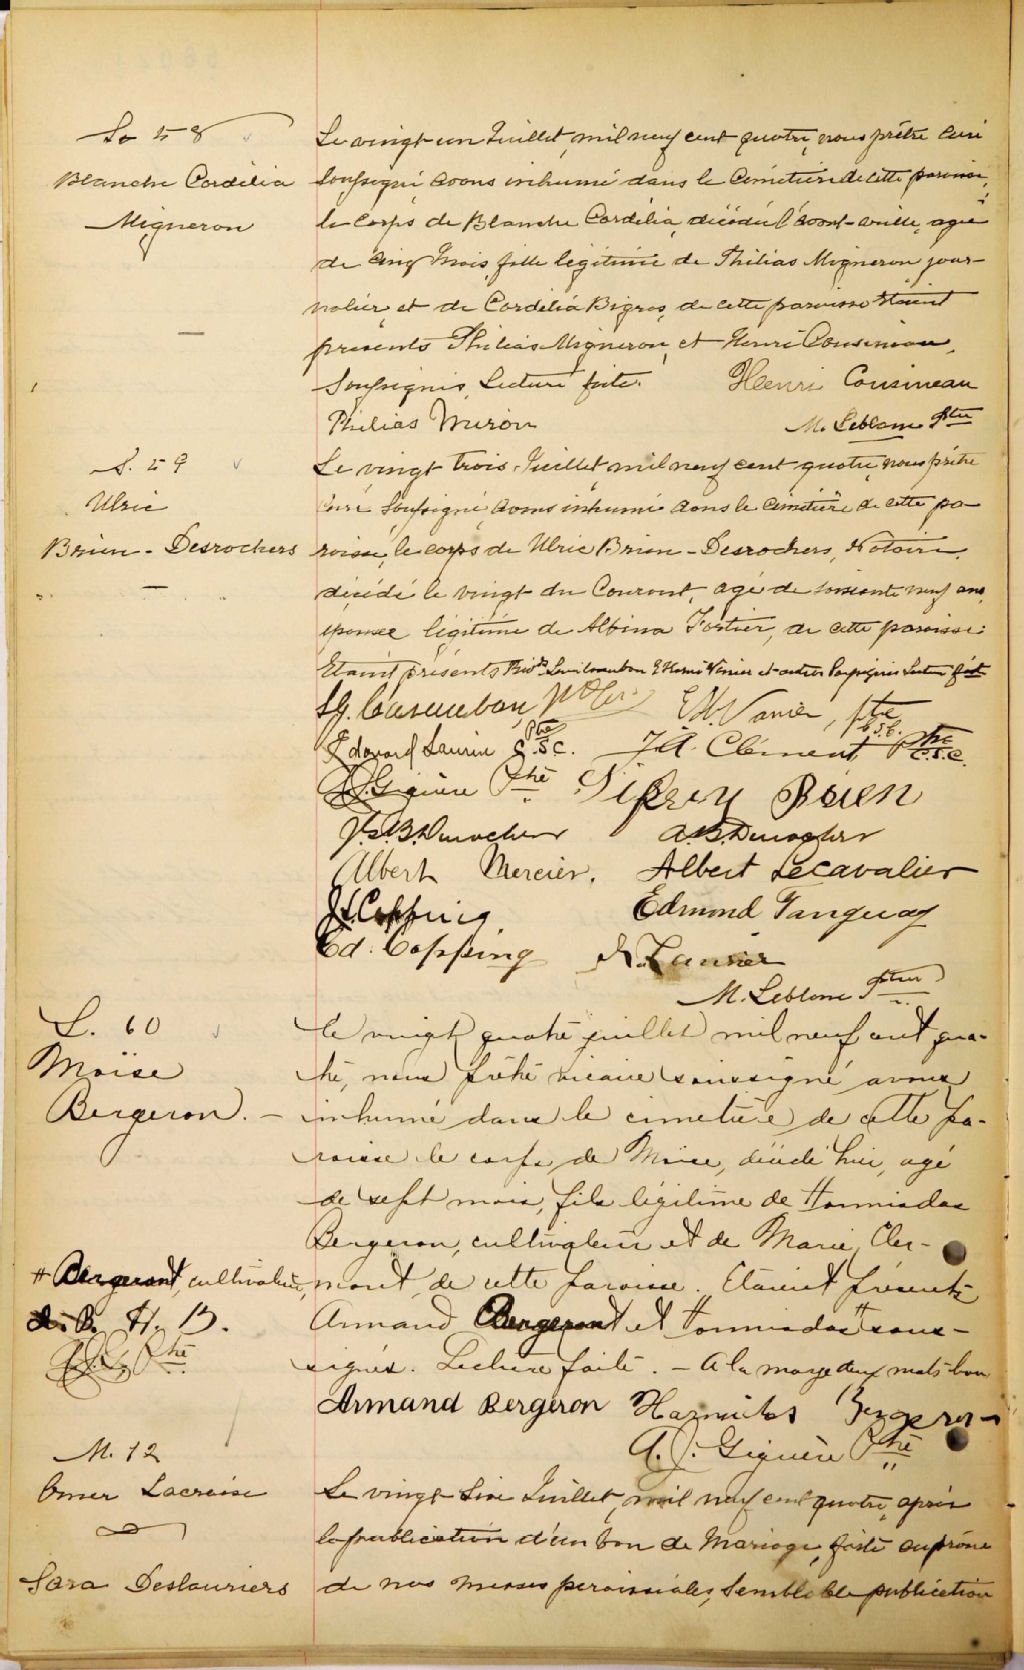 S. 58
Blanche Cordélia
Migneron
Le vingt-un Juillet, mil neuf cent quatre, nous prêtre curé
soussigné avons inhumé dans le cimetière de cette paroisse,
le corps de Blanche Cordélia, décédée l'avant-veille, agée
de cinq mois, fille légitime de Philias Migneron jour-
nalier, et de Cordélia Bigras, de cette paroisse. Etaient
présents Philias Migneron, et Henri Cousineau,
soussignés. Lecture faite. Henri Cousineau
Philias Miron M. Leblanc Ptre
S. 59
Ulric
Brien-Desrochers
Le vingt trois Juillet, mil neuf cent quatre, nous prêtre
curé soussigné, avons inhumé dans le cimetière de cette pa-
roisse, le corps de Ulric Brien-Desrochers, Notaire,
décédé le vingt du Courant, agé de soixante neuf ans,
époux légitime de Albina Fortier, de cette paroisse.
Etaient présents Casaubon E. Vanier et autres soussignés Lecture faite
Casaubon, ptre E. H. Vanier, ptre c.s.c.
Edouard Laurin Ptre C.S.C. J. A. Clément Ptre C.S.C.
A. J. Giguère Ptre Brien
J. B. Desrochers A. B. Desrochers
Albert Mercier. Albert Lecavalier
Copping Edmond Tanguay
Ed. Copping
M. Leblanc Ptre
S. 60
Moïse
Bergeron. -
le vingt quatre juillet mil neuf cent qua-
tre, nous prêtre vicaire soussigné avons
inhumé dans le cimetière de cette pa-
roisse le corps de Moïse, décédé hier, agé
de sept mois, fils légitime de Hormisdas
Bergeron, cultivateur et de Marie Cler-
mont, de cette paroisse. Etaient présents
Armand Bergeron et Hormisdas # sous-
signés. Lecture faite. - A la marge deux mots bon
# Bergeront, cultivateur,
A. B. H. B.
A. J. G. Ptre
Armand Bergeron Harmidas Bergeron
A. J. Giguère Ptre
M. 12
Omer Lacroix
Sara Deslauriers
Le vingt six Juillet, mil neuf cent quatre, après
la publication d'un ban de Mariage, faite au prône
de nos messes paroissiales, semblable publication